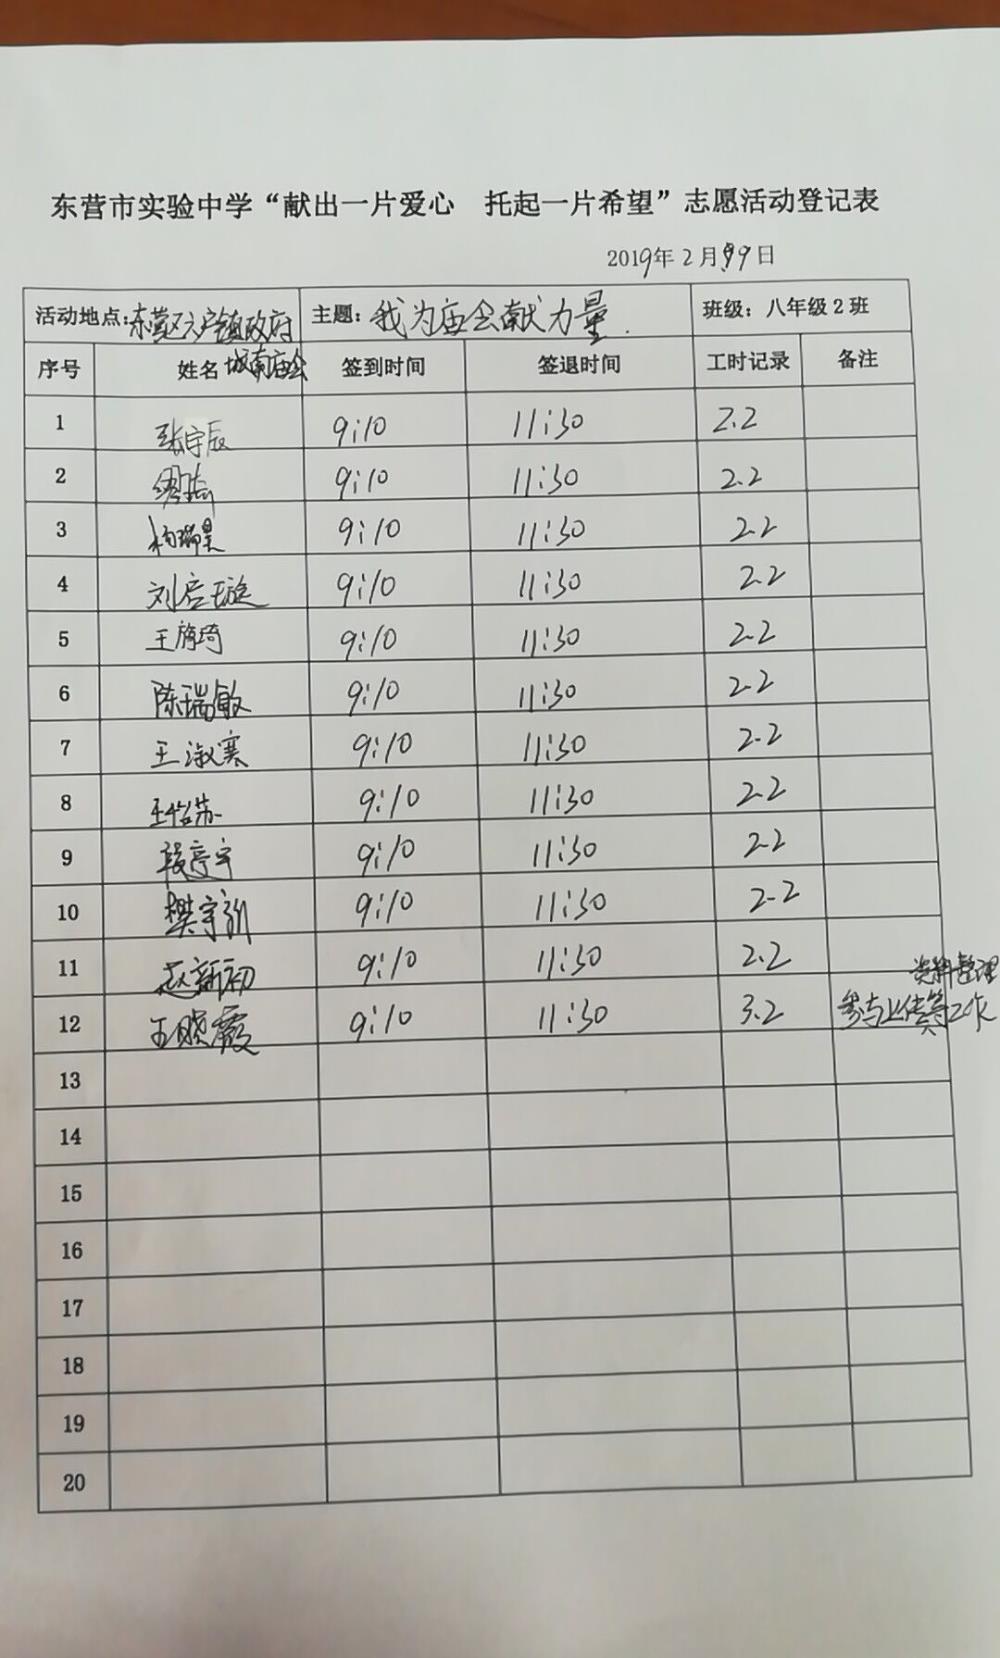 东营市实验中学“献出一片爱心 托起一片希望”志愿活动登记表
2019年2月19日
活动地点:东营区六户镇政府 主题: 我为庙会献力量. 班级: 八年级2班
城南庙会
序号 姓名 签到时间 签退时间 工时记录 备注
1 张宇辰 9:10 11:30 2.2
2 9:10 11:30 2.2
3 杨瑞昊 9:10 11:30 2.2
4 刘启璇 9:10 11:30 2.2
5 王旖琦 9:10 11:30 2.2
6 陈瑞敏 9:10 11:30 2.2
7 王淑寒 9:10 11:30 2.2
8 王怡苏 9:10 11:30 2.2
9 段亭宇 9:10 11:30 2.2
10 樊宇 9:10 11:30 2.2
11 赵新初 9:10 11:30 2.2 资料整理
12 王晓霞 9:10 11:30 3.2 参与上传等工作
13
14
15
16
17
18
19
20